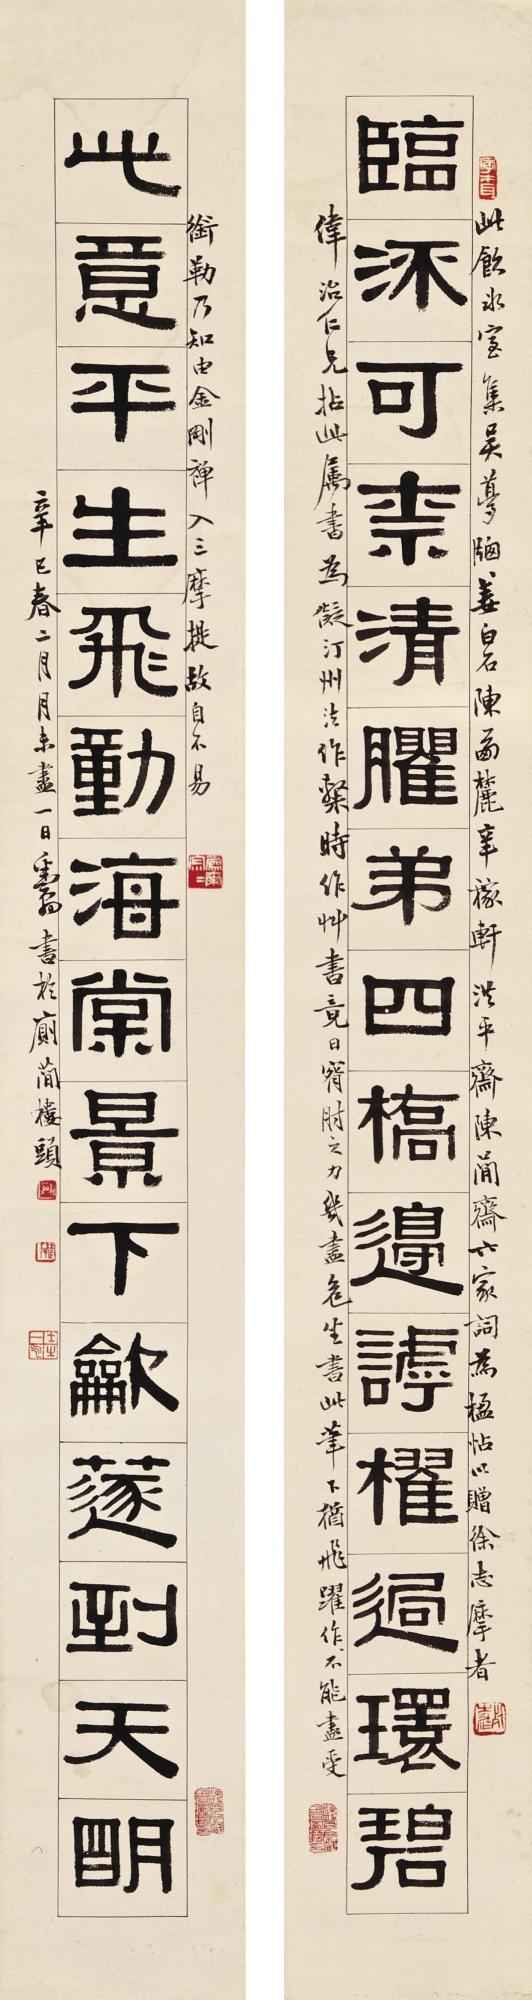 臨流可奈清臞第四橋邊謼櫂過環碧
此飲冰室集吳夢窗姜白石陳西麓辛稼軒洪平齋陳簡齋六家詞為楹帖以贈徐志摩者
偉治仁兄拈此属書為擬汀州法作槃時作艸書竟日窘肘之力幾盡危坐書此筆下猶飛躍作不能盡受
此意平生飛動海棠景下龡邃到天朙
銜勒乃知由金剛禅入三摩提故自不易
辛巳春二月月未盡一日 書於 簡樓頭